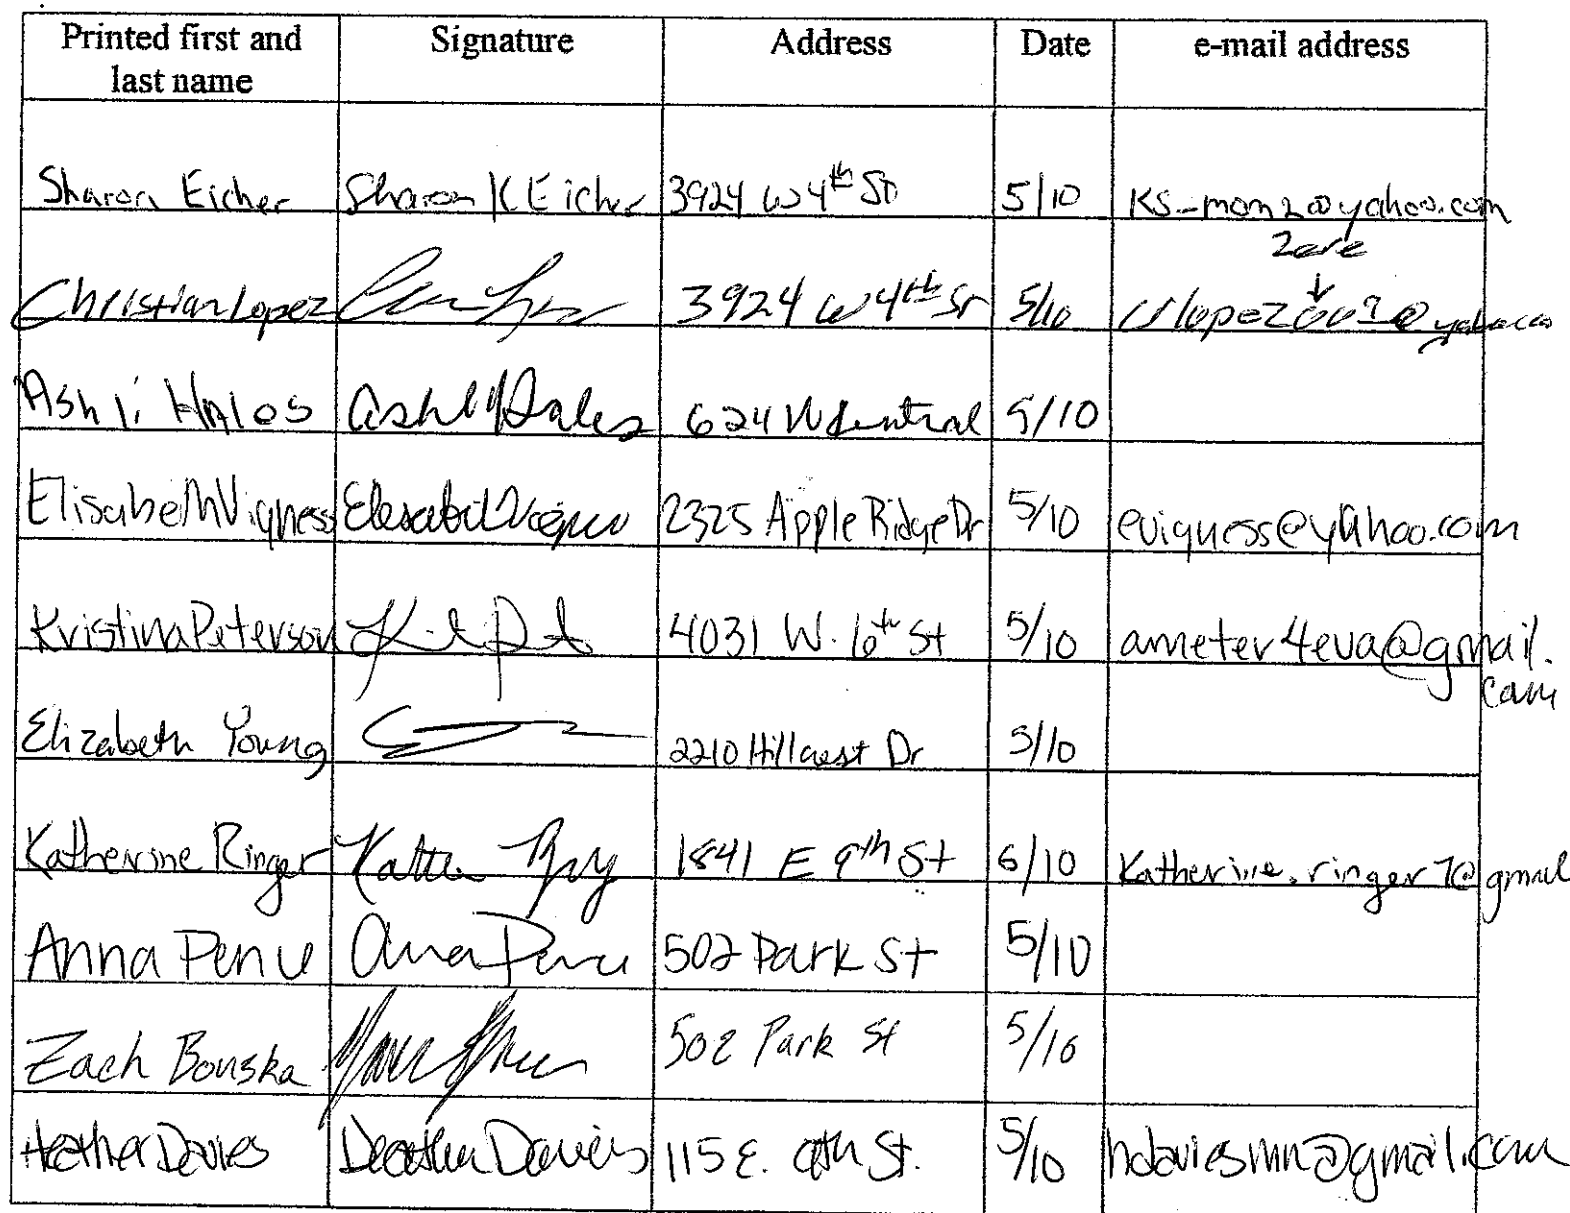 Printed first and last name Signature Address Date e-mail address
Sharon Eicher Sharon K Eicher 3924 W 4th St 5/10 KS-mom2@yahoo.com
Zero
↓
Christian Lopez 3924 W 4th St 5/10
Ashli Hales Ashli Hales 624 W Central 5/10
Elisabeth Vigness Elisabeth Vigness 2325 Apple Ridge Dr 5/10 evigness@yahoo.com
Kristina Peterson 4031 W. 6th St 5/10 ameter4eva@gmail.
com
Elizabeth Young 2210 Hillcrest Dr 5/10
Katherine Ringer 1841 E 9th St 6/10 Katherine.ringer7@gmail
Anna Penu Anna Penu 502 Park St 5/10
Zach Bouska 502 Park St 5/10
Heather Davies Heather Davies 115 E. 9th St. 5/10 hdaviesmn@gmail.com